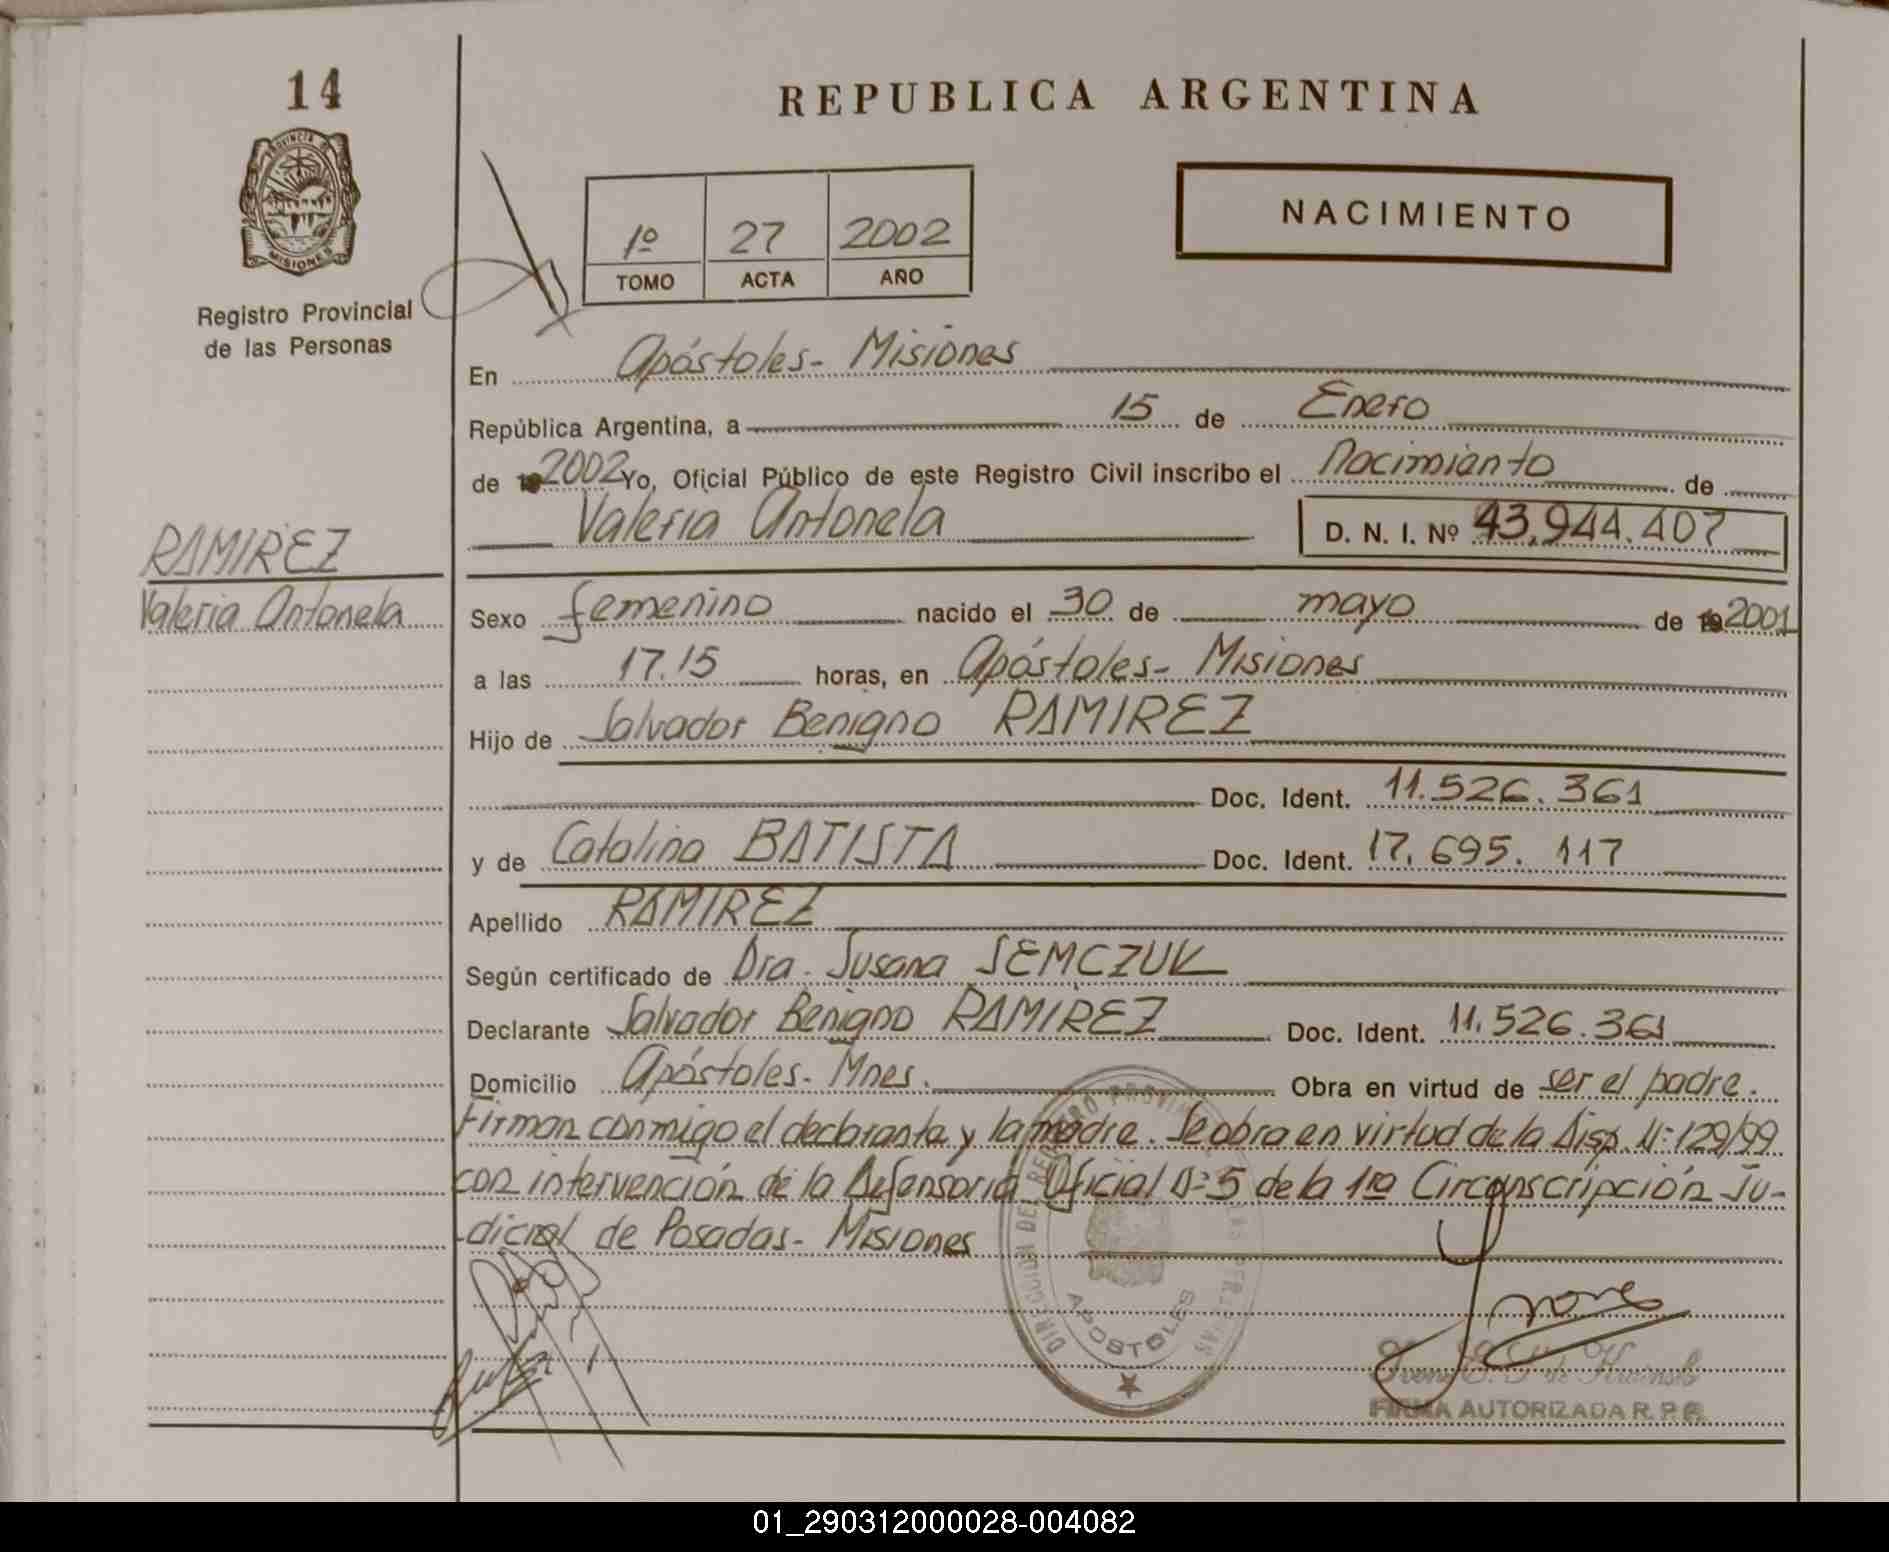 14
REPUBLICA ARGENTINA
PROVINCIA DE
MISIONES
NACIMIENTO
1º 27 2002
TOMO ACTA AÑO
Registro Provincial
de las Personas
En Apóstoles - Misiones
República Argentina, a 15 de Enero
de 2002 Yo, Oficial Público de este Registro Civil inscribo el Nacimiento de
Valeria Antonela D. N. I. Nº 43.944.407
RAMIREZ
Valeria Antonela
Sexo femenino nacido el 30 de mayo de 2001
a las 17.15 horas, en Apóstoles - Misiones
Hijo de Salvador Benigno RAMIREZ
Doc. Ident. 11.526.361
y de Catalina BATISTA Doc. Ident. 17.695.117
Apellido RAMIREZ
Según certificado de Dra. Susana SEMCZUK
Declarante Salvador Benigno RAMIREZ Doc. Ident. 11.526.361
Domicilio Apóstoles - Mnes. Obra en virtud de ser el padre.
Firman conmigo el declarante y la madre. Se obra en virtud de la Disp. Nº 129/99
con intervención de la Defensoria Oficial Nº 5 de la 1ra Circunscripción Ju-
-dicial de Posadas - Misiones
DIRECCION DEL REGISTRO PROVINCIAL DE LAS PERSONAS
APOSTOLES
FIRMA AUTORIZADA R. P. P.
01_290312000028-004082